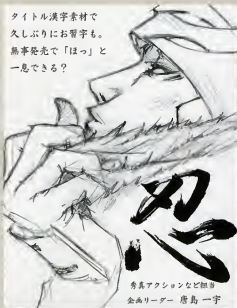 タイトル漢字素材で
久しぶりにお習字も。
無事発売で「ほっ」と
一息できる？
忍
秀真アクションなど担当
企画リーダー 唐島 一宇